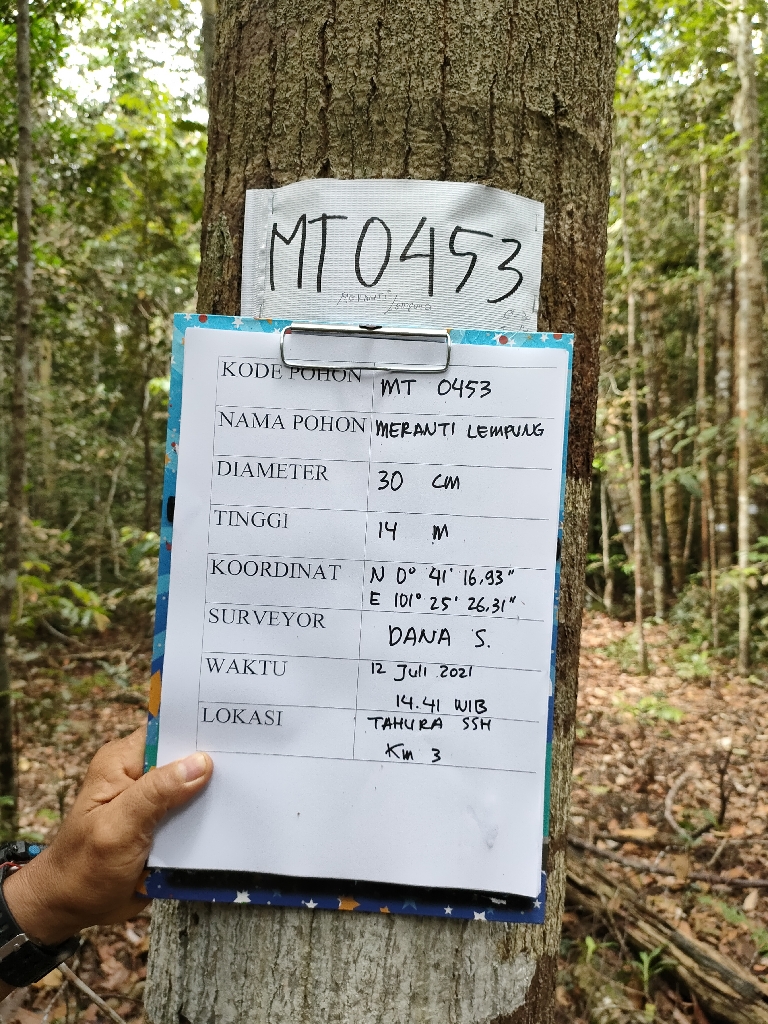 MT 0453
KODE POHON MT 0453
NAMA POHON MERANTI LEMPUNG
DIAMETER 30 CM
TINGGI 14 M
KOORDINAT N 0° 41' 16,93"
E 101° 25' 26,31"
SURVEYOR DANA S.
WAKTU 12 Juli 2021
14.41 WIB
LOKASI TAHURA SSH
Km 3